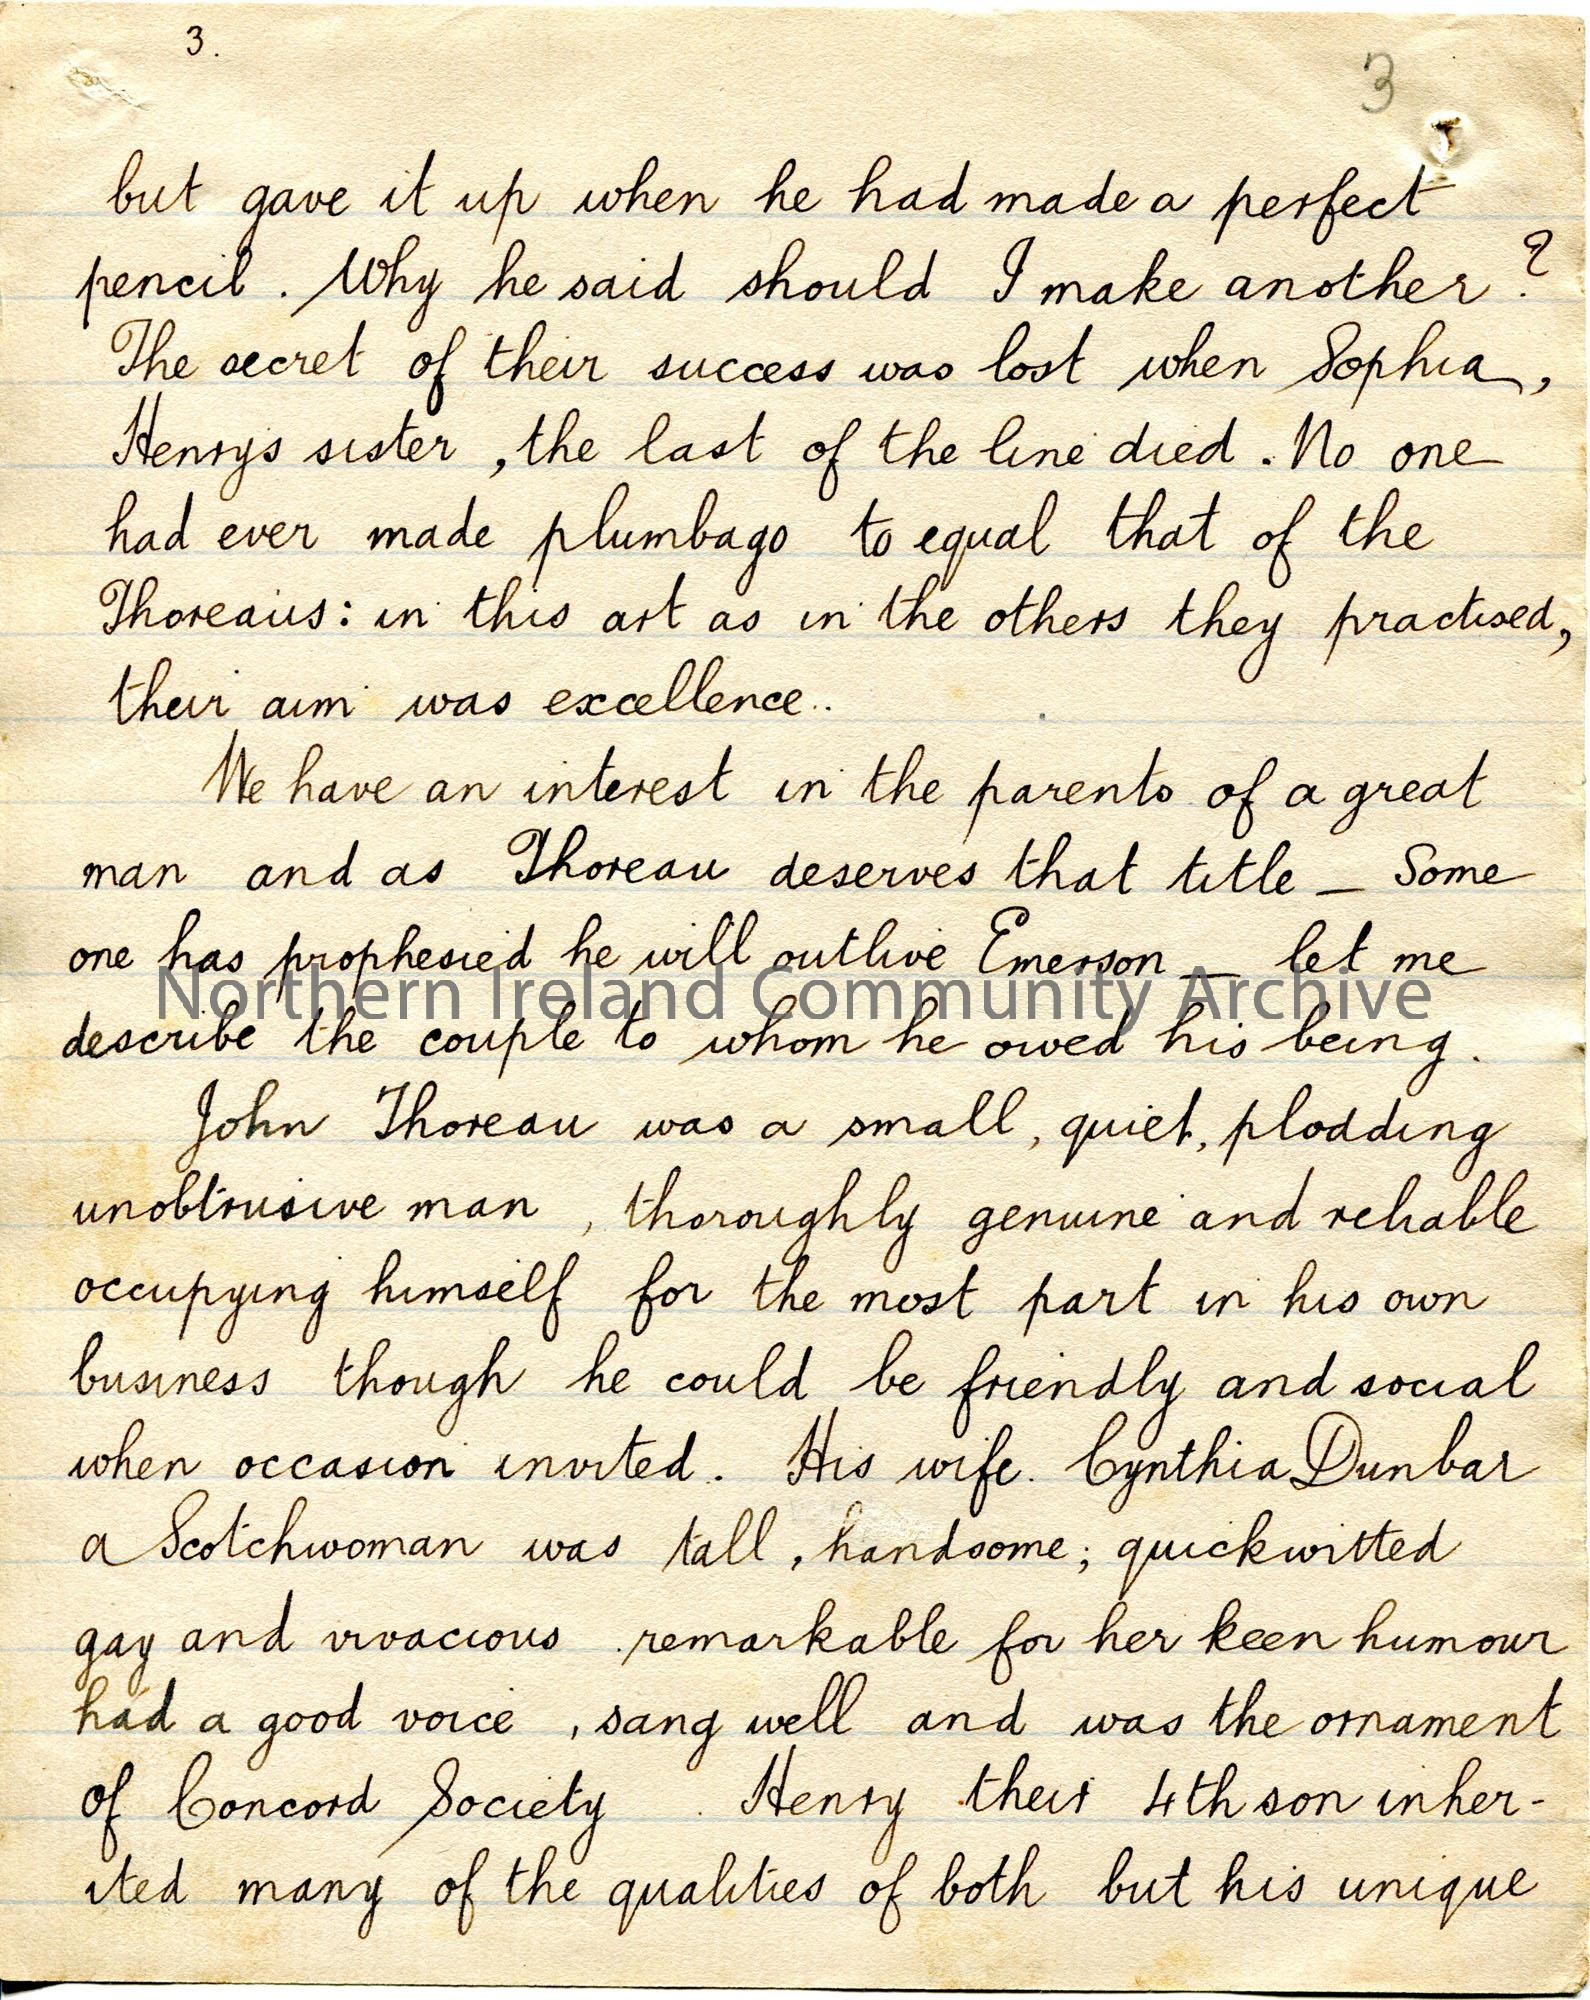 3.
3
but gave it up when he had made a perfect
pencil. Why he said should I make another?
The secret of their success was lost when Sophia,
Henrys sister, the last of the line died. No one
had ever made plumbago to equal that of the
Thoreaus: in this art as in the others they practised,
their aim was excellence..
We have an interest in the parents of a great
man and as Thoreau deserves that title — Some
one has prophesied he will outlive Emerson — let me
Northern Ireland Community Archive
describe the couple to whom he owed his being.
John Thoreau was a small, quiet, plodding
unobtrusive man, thoroughly genuine and reliable
occupying himself for the most part in his own
business though he could be friendly and social
when occasion invited. His wife. Cynthia Dunbar
a Scotchwoman was tall, handsome; quickwitted
gay and vivacious. remarkable for her keen humour
had a good voice, sang well and was the ornament
of Concord Society. Henry their 4th son inher-
ited many of the qualities of both but his unique